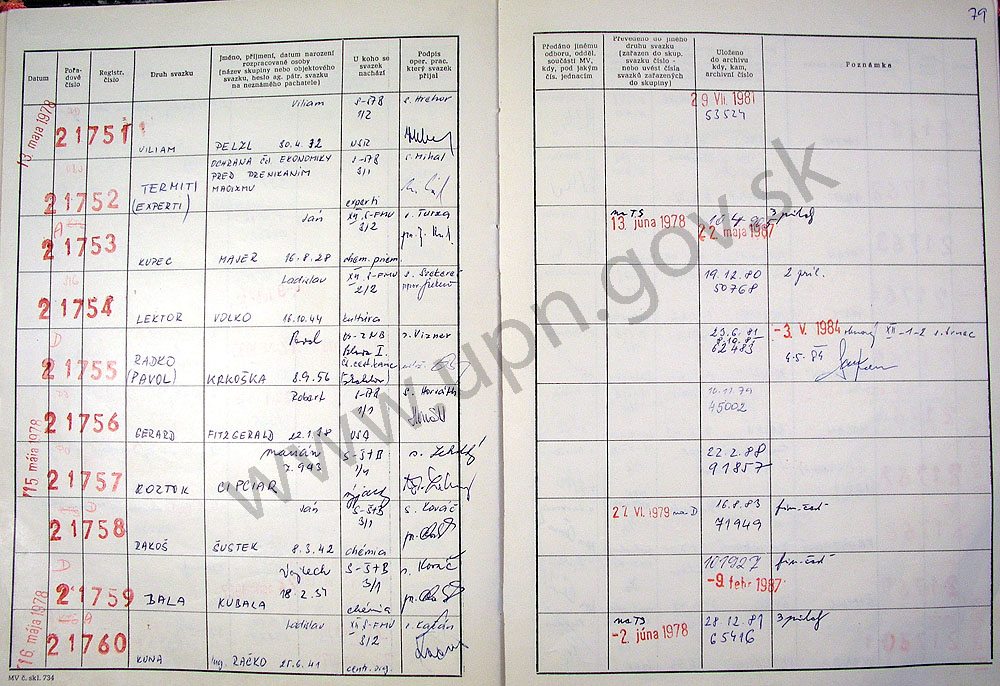 79
Datum
Pořadové číslo
Registr. číslo
Druh svazku
Jméno, příjmení, datum narození
rozpracované osoby
(název skupiny nebo objektového
svazku, heslo ag. pátr. svazku
na neznámého pachatele)
U koho se
svazek
nachází
Podpis
oper. prac.
který svazek
přijal
Předáno jinému
odboru, odděl.
součásti MV,
kdy, pod jakým
čís. jednacím
Převedeno do jiného
druhu svazku
(zařazen do skup.
svazku číslo -
nebo uvést čísla
svazků zařazených
do skupiny)
Uloženo
do archivu
kdy, kam,
archivní číslo
Poznámka
13. mája 1978
21751
VILIAM
Viliam
PELZL 30.4.32
S-178
1/2
NSR
29 VII. 1981
53524
21752
TERMITI
(EXPERTI)
OCHRANA ČS. EKONOMIKY
PRED PRENIKANIM
MAOIZMU
S-178
3/1
experti
s. Mihal
21753
KUPEC
Ján
MAJER 16.8.28
XII. S-FMV
3/2
chem. priem
s. Turza
na TS
13. júna 1978
22. mája 1987
3 prílohy
21754
LEKTOR
Ladislav
VOLKO 16.10.44
XII S-FMV
2/2
kultúra
19.12.80
50768
2 príl.
21755
RADKO
(PAVOL)
Pavol
KRKOŠKA 8.9.56
s. Vizner
23.6.81
8.10.85
62485
-3. V. 1984
XII -1-2
4.5.84
15. mája 1978
21756
GERARD
Robert
FITZGERALD 22.1.18
S-178
1/1
USA
s. Horváth
10.11.79
45002
21757
ROZTOK
Marián
7.943
CIPCIAR
S-ŠtB
1/1
22.2.88
91857
21758
RAKOŠ
Ján
ŠUSTEK 8.3.42
S-ŠtB
3/1
chémia
s. Kováč
27. VI. 1979 na D
16.8.83
71949
21759
BALA
Vojtech
18.2.31
KUBALA
S-ŠtB
3/1
chémia
s. Kováč
101927
-9. febr 1987
16. mája 1978
21760
KUNA
Ladislav
Ing. RAČKO 25.6.41
XII S-FMV
3/2
s. Kaján
na TS
-2. júna 1978
28.12.81
65416
3 prílohy
MV č. skl. 734
www.upn.gov.sk